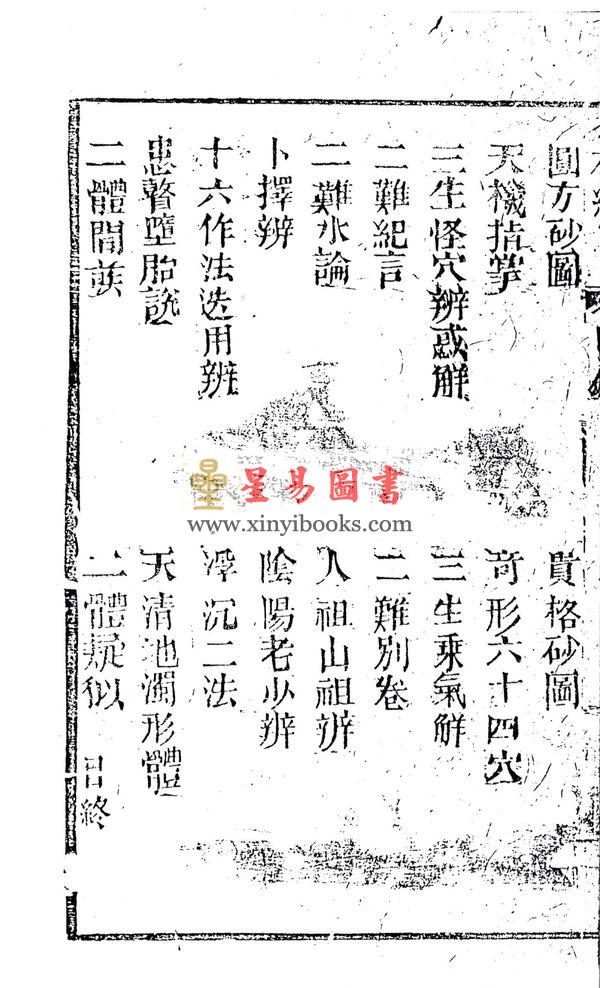 圓方砂圖　貴格砂圖
天機指掌　奇形六十四穴
三生怪穴辨惑解　三生乘氣解
二難紀言　二難別卷
二難水論　人祖山祖辨
卜擇辨　陰陽老少辨
十六作法迭用辨　浮沉二法
患瞽墮胎說　天清地濁形體
二體間族　二體疑似　目終
星易圖書
www.xinyibooks.com